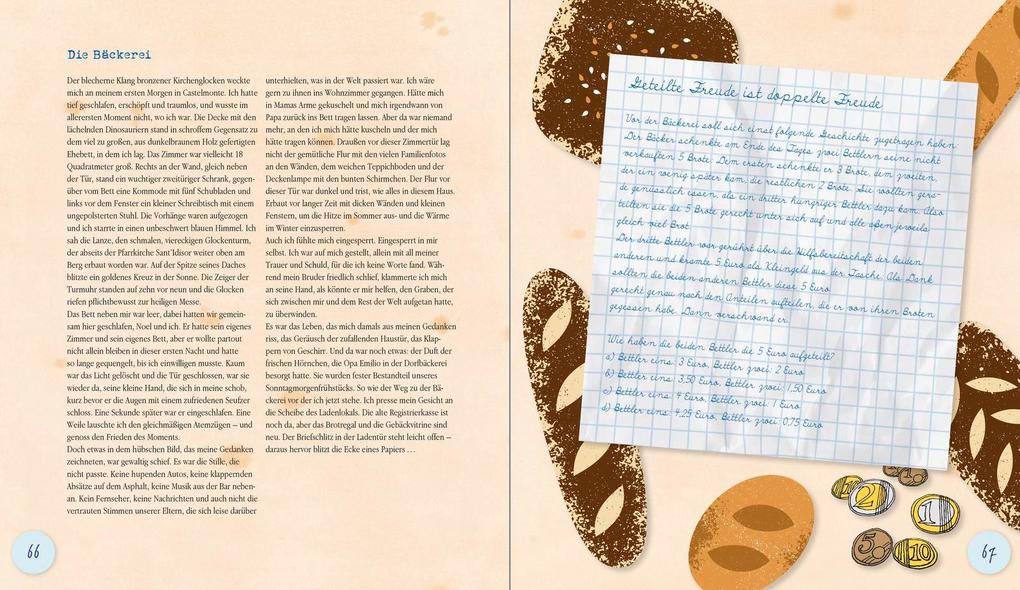 Die Bäckerei
Der blecherne Klang bronzener Kirchenglocken weckte
mich an meinem ersten Morgen in Castelmonte. Ich hatte
tief geschlafen, erschöpft und traumlos, und wusste im
allerersten Moment nicht, wo ich war. Die Decke mit den
lächelnden Dinosauriern stand in schroffem Gegensatz zu
dem viel zu großen, aus dunkelbraunem Holz gefertigten
Ehebett, in dem ich lag. Das Zimmer war vielleicht 18
Quadratmeter groß. Rechts an der Wand, gleich neben
der Tür, stand ein wuchtiger zweitüriger Schrank, gegen-
über vom Bett eine Kommode mit fünf Schubladen und
links vor dem Fenster ein kleiner Schreibtisch mit einem
ungepolsterten Stuhl. Die Vorhänge waren aufgezogen
und ich starrte in einen unbeschwert blauen Himmel. Ich
sah die Lanze, den schmalen, viereckigen Glockenturm,
der abseits der Pfarrkirche Sant'Idisor weiter oben am
Berg erbaut worden war. Auf der Spitze seines Daches
blitzte ein goldenes Kreuz in der Sonne. Die Zeiger der
Turmuhr standen auf zehn vor neun und die Glocken
riefen pflichtbewusst zur heiligen Messe.
Das Bett neben mir war leer, dabei hatten wir gemein-
sam hier geschlafen, Noel und ich. Er hatte sein eigenes
Zimmer und sein eigenes Bett, aber er wollte partout
nicht allein bleiben in dieser ersten Nacht und hatte
so lange gequengelt, bis ich einwilligen musste. Kaum
war das Licht gelöscht und die Tür geschlossen, war sie
wieder da, seine kleine Hand, die sich in meine schob,
kurz bevor er die Augen mit einem zufriedenen Seufzer
schloss. Eine Sekunde später war er eingeschlafen. Eine
Weile lauschte ich den gleichmäßigen Atemzügen – und
genoss den Frieden des Moments.
Doch etwas in dem hübschen Bild, das meine Gedanken
zeichneten, war gewaltig schief. Es war die Stille, die
nicht passte. Keine hupenden Autos, keine klappernden
Absätze auf dem Asphalt, keine Musik aus der Bar neben-
an. Kein Fernseher, keine Nachrichten und auch nicht die
vertrauten Stimmen unserer Eltern, die sich leise darüber
unterhielten, was in der Welt passiert war. Ich wäre
gern zu ihnen ins Wohnzimmer gegangen. Hätte mich
in Mamas Arme gekuschelt und mich irgendwann von
Papa zurück ins Bett tragen lassen. Aber da war niemand
mehr, an den ich mich hätte kuscheln und der mich
hätte tragen können. Draußen vor dieser Zimmertür lag
nicht der gemütliche Flur mit den vielen Familienfotos
an den Wänden, dem weichen Teppichboden und der
Deckenlampe mit den bunten Schirmchen. Der Flur vor
dieser Tür war dunkel und trist, wie alles in diesem Haus.
Erbaut vor langer Zeit mit dicken Wänden und kleinen
Fenstern, um die Hitze im Sommer aus- und die Wärme
im Winter einzusperren.
Auch ich fühlte mich eingesperrt. Eingesperrt in mir
selbst. Ich war auf mich gestellt, allein mit all meiner
Trauer und Schuld, für die ich keine Worte fand. Wäh-
rend mein Bruder friedlich schlief, klammerte ich mich
an seine Hand, als könnte er mir helfen, den Graben, der
sich zwischen mir und dem Rest der Welt aufgetan hatte,
zu überwinden.
Es war das Leben, das mich damals aus meinen Gedanken
riss, das Geräusch der zufallenden Haustür, das Klap-
pern von Geschirr. Und da war noch etwas: der Duft der
frischen Hörnchen, die Opa Emilio in der Dorfbäckerei
besorgt hatte. Sie wurden fester Bestandteil unseres
Sonntagmorgenfrühstücks. So wie der Weg zu der Bä-
ckerei vor der ich jetzt stehe. Ich presse mein Gesicht an
die Scheibe des Ladenlokals. Die alte Registrierkasse ist
noch da, aber das Brotregal und die Gebäckvitrine sind
neu. Der Briefschlitz in der Ladentür steht leicht offen –
daraus hervor blitzt die Ecke eines Papiers …
66
Geteilte Freude ist doppelte Freude
Vor der Bäckerei soll sich einst folgende Geschichte zugetragen haben:
Der Bäcker schenkte am Ende des Tages zwei Bettlern seine nicht
verkauften 5 Brote. Dem ersten schenkte er 3 Brote, dem zweiten,
der ein wenig später kam, die restlichen 2 Brote. Sie wollten gera-
de genüsslich essen, als ein dritter hungriger Bettler dazu kam. Also
teilten sie die 5 Brote gerecht unter sich auf und alle aßen jeweils
gleich viel Brot.
Der dritte Bettler war gerührt über die Hilfsbereitschaft der beiden
anderen und kramte 5 Euro als Kleingeld aus der Tasche. Als Dank
sollten die beiden anderen Bettler diese 5 Euro
gerecht genau nach den Anteilen aufteilen, die er von ihren Broten
gegessen habe. Dann verschwand er.
Wie haben die beiden Bettler die 5 Euro aufgeteilt?
a) Bettler eins: 3 Euro, Bettler zwei: 2 Euro
b) Bettler eins: 3,50 Euro, Bettler zwei: 1,50 Euro
c) Bettler eins: 4 Euro, Bettler zwei: 1 Euro
d) Bettler eins: 4,25 Euro, Bettler zwei: 0,75 Euro
2
1
5
10
67